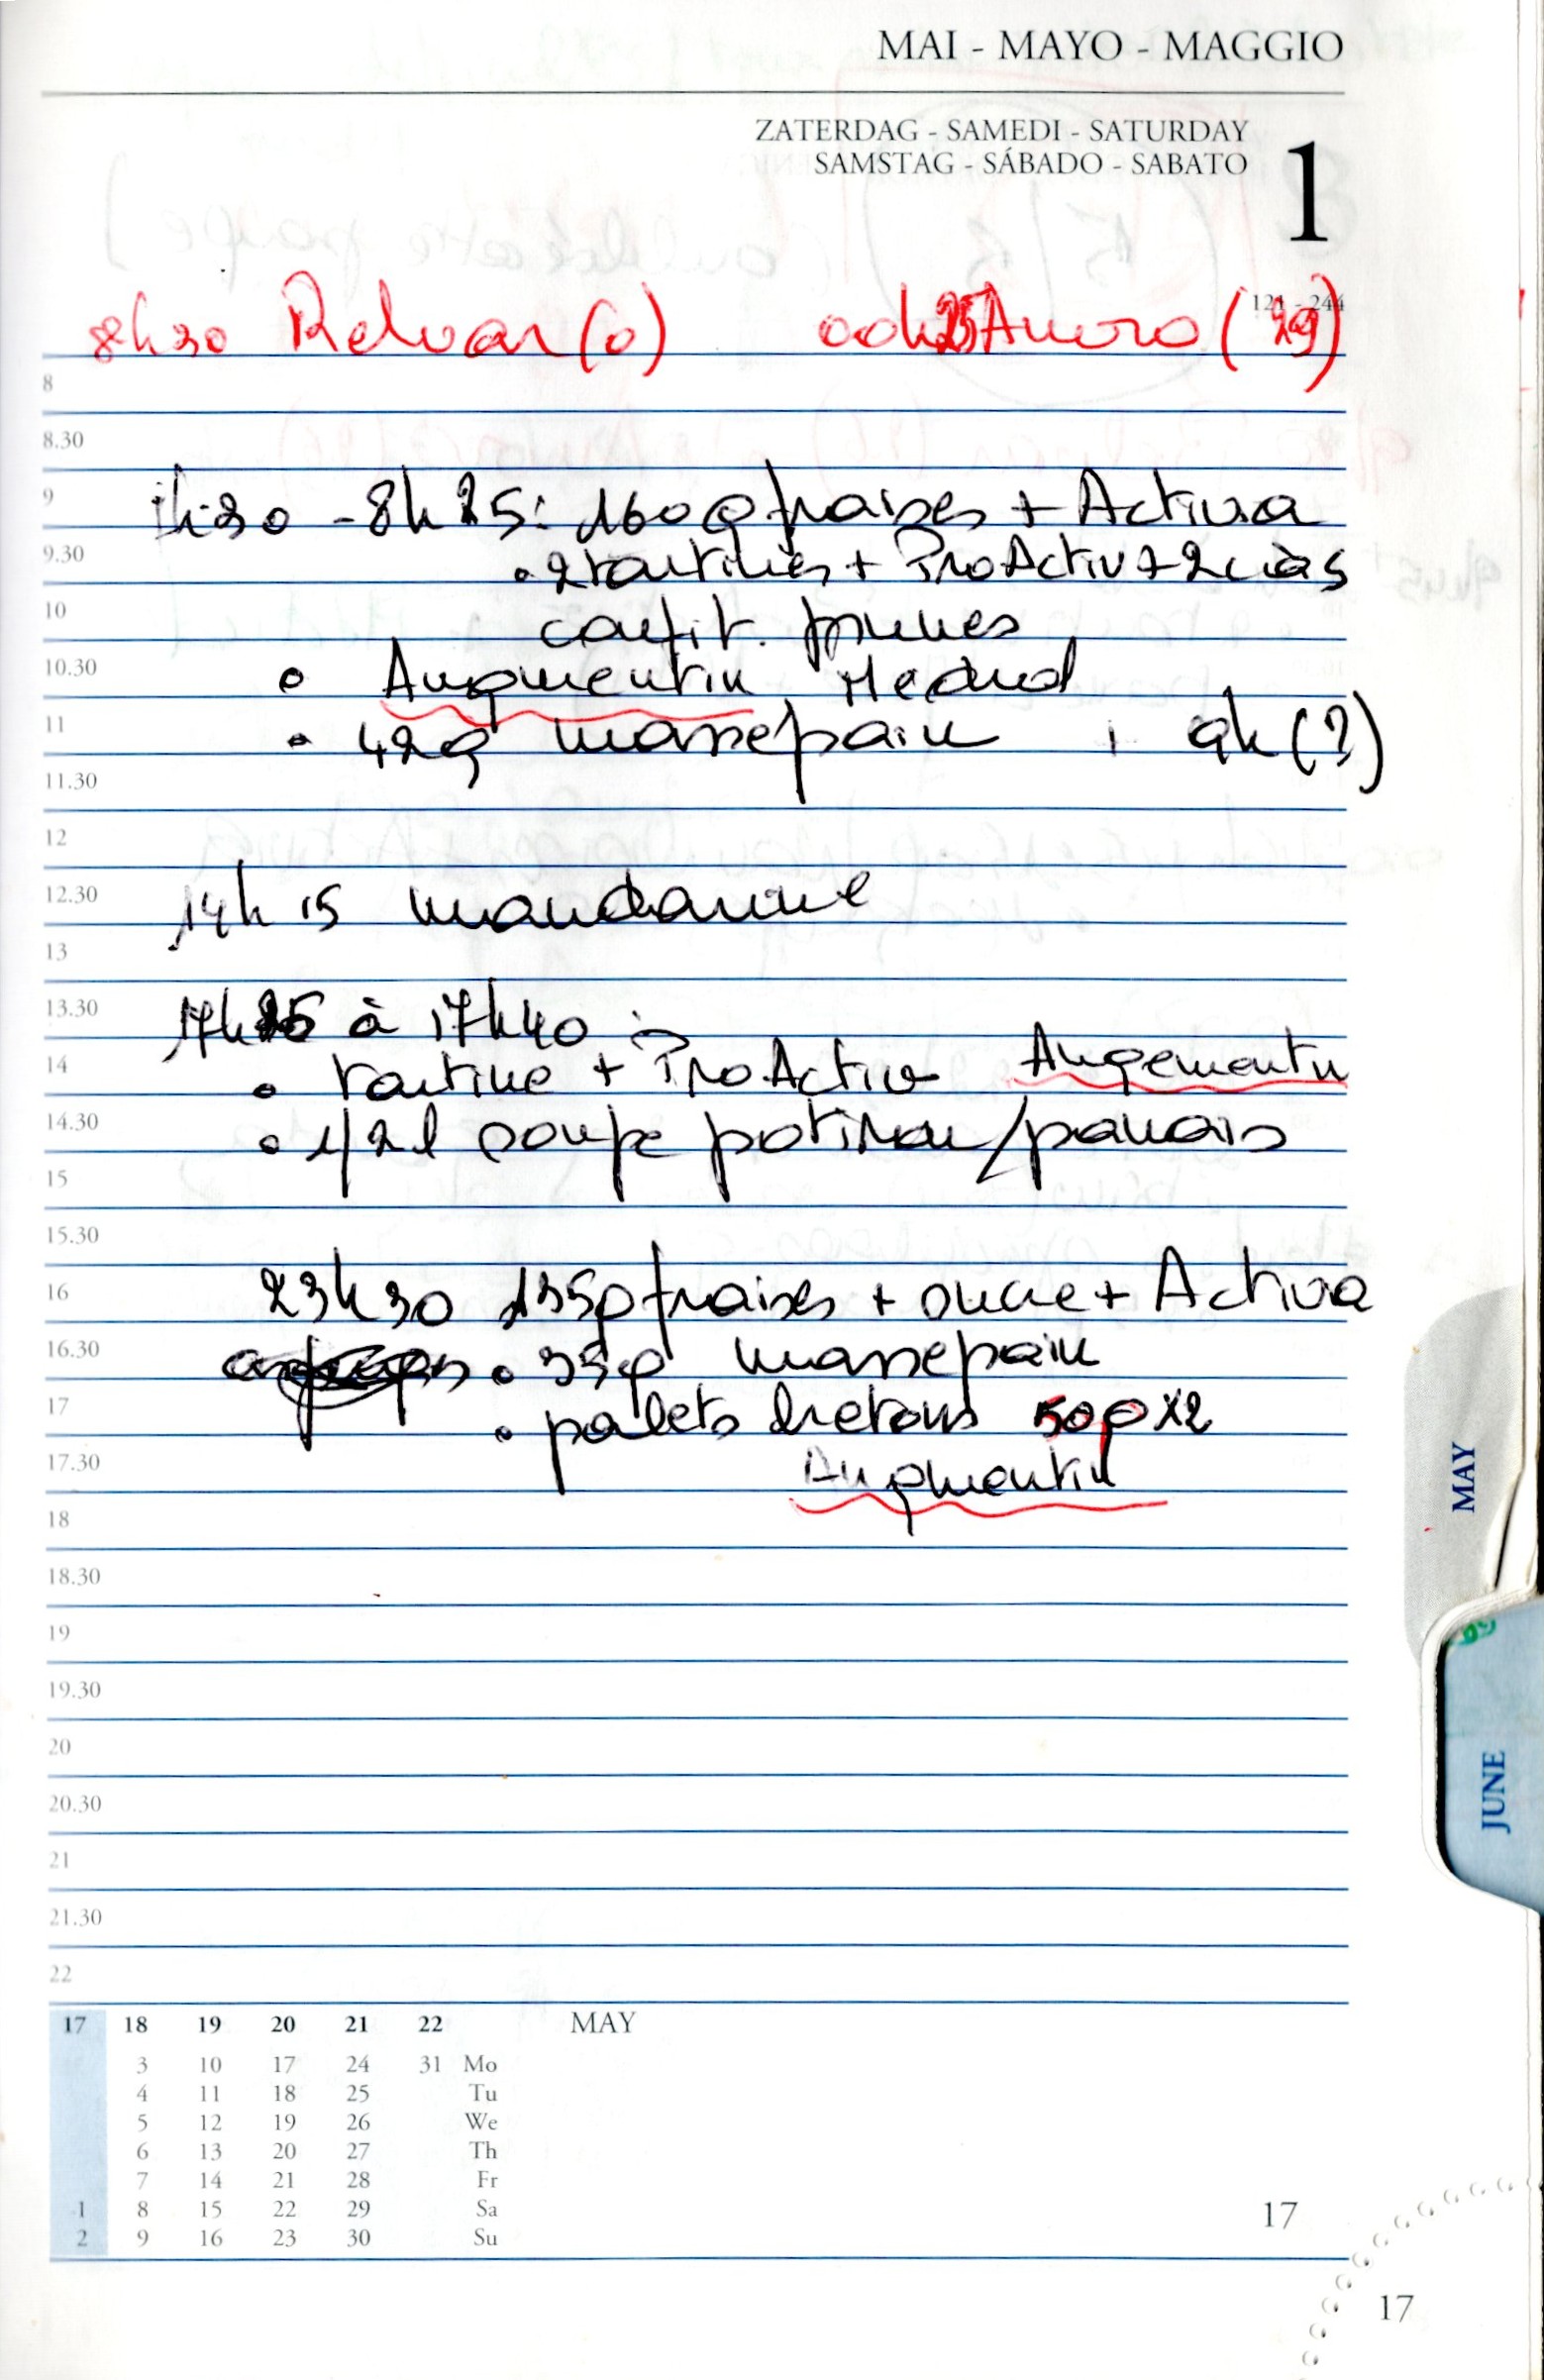 MAI - MAYO - MAGGIO
ZATERDAG - SAMEDI - SATURDAY
SAMSTAG - SÁBADO - SABATO
1
121 - 244
8h30 Relvar (0) 00h25 Anoro (29)
8
8.30
9
h30 - 8h25: 160g fraises + Activia
9.30
• 2 tartines + ProActiv + 2 c à s
10
confit. prunes
10.30
• Augmentin Medrol
11
• 42g massepain 9h (?)
11.30
12
12.30
14h15 mandarine
13
13.30
17h25 à 17h40 :
14
• tartine + ProActiv Augementin
14.30
• 1/2 l soupe potiron/panais
15
15.30
16
23h30 135g fraises + sucre + Activia
16.30
• 35g massepain
17
• palets bretons 50g x2
17.30
Augmentin
18
18.30
19
19.30
20
20.30
21
21.30
22
17 18 19 20 21 22 MAY
3 10 17 24 31 Mo
4 11 18 25 Tu
5 12 19 26 We
6 13 20 27 Th
7 14 21 28 Fr
1 8 15 22 29 Sa
2 9 16 23 30 Su
17
17
MAY
JUNE